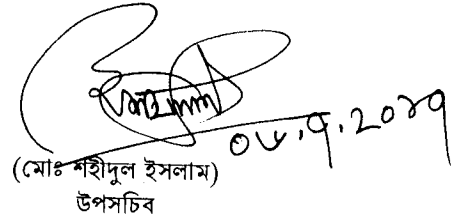 ০৬.৭.২০১৭
(মোঃ শহীদুল ইসলাম)
উপসচিব